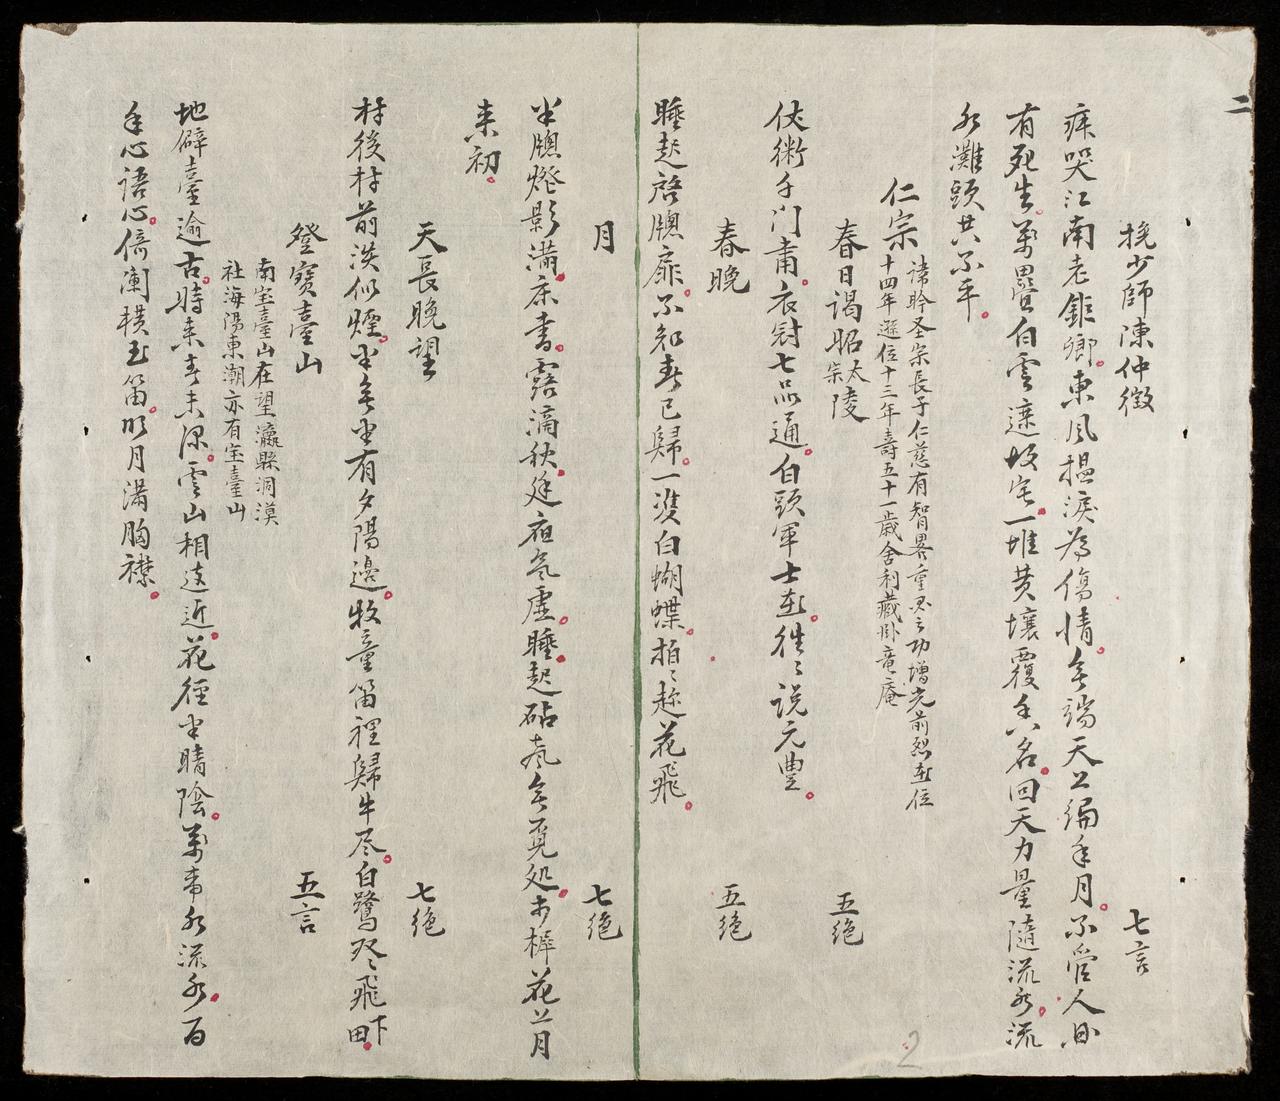 二
挽少師陳仲徵 七言
痛哭江南老鉅卿東風揾淚為傷情無端天上編年月不管人間
有死生萬疊白雲遮故宅一堆黄壤覆香名回天力量隨流水流
水灘頭共不平
仁宗諱昑圣宗長子仁慈有智畧重恢之功增光前烈在位
十四年遜位十三年壽五十一歲舍利藏卧竜庵
春日謁昭陵太宗 五絶
仗衛千門肅衣冠七品通白頭軍士在往〻説元豊
春晚 五絶
睡起啓牕扉不知春已歸一雙白蝴蝶拍〻趂花飛
月 七絶
半牕燈影滿床書露滴秋庭夜氣虚睡起砧声無覓処木樨花上月
来初
天長晚望 七絶
村後村前淡似煙半無半有夕陽邊牧童笛裡歸牛尽白鷺双〻飛下田
登寶臺山 五言
南宝臺山在望瀛縣洞漠
社海陽東潮亦有宝臺山
地僻臺逾古時来春未深雲山相遠近花徑半晴陰萬事水流水百
年心語心倚闌横玉笛明月滿胸襟
2